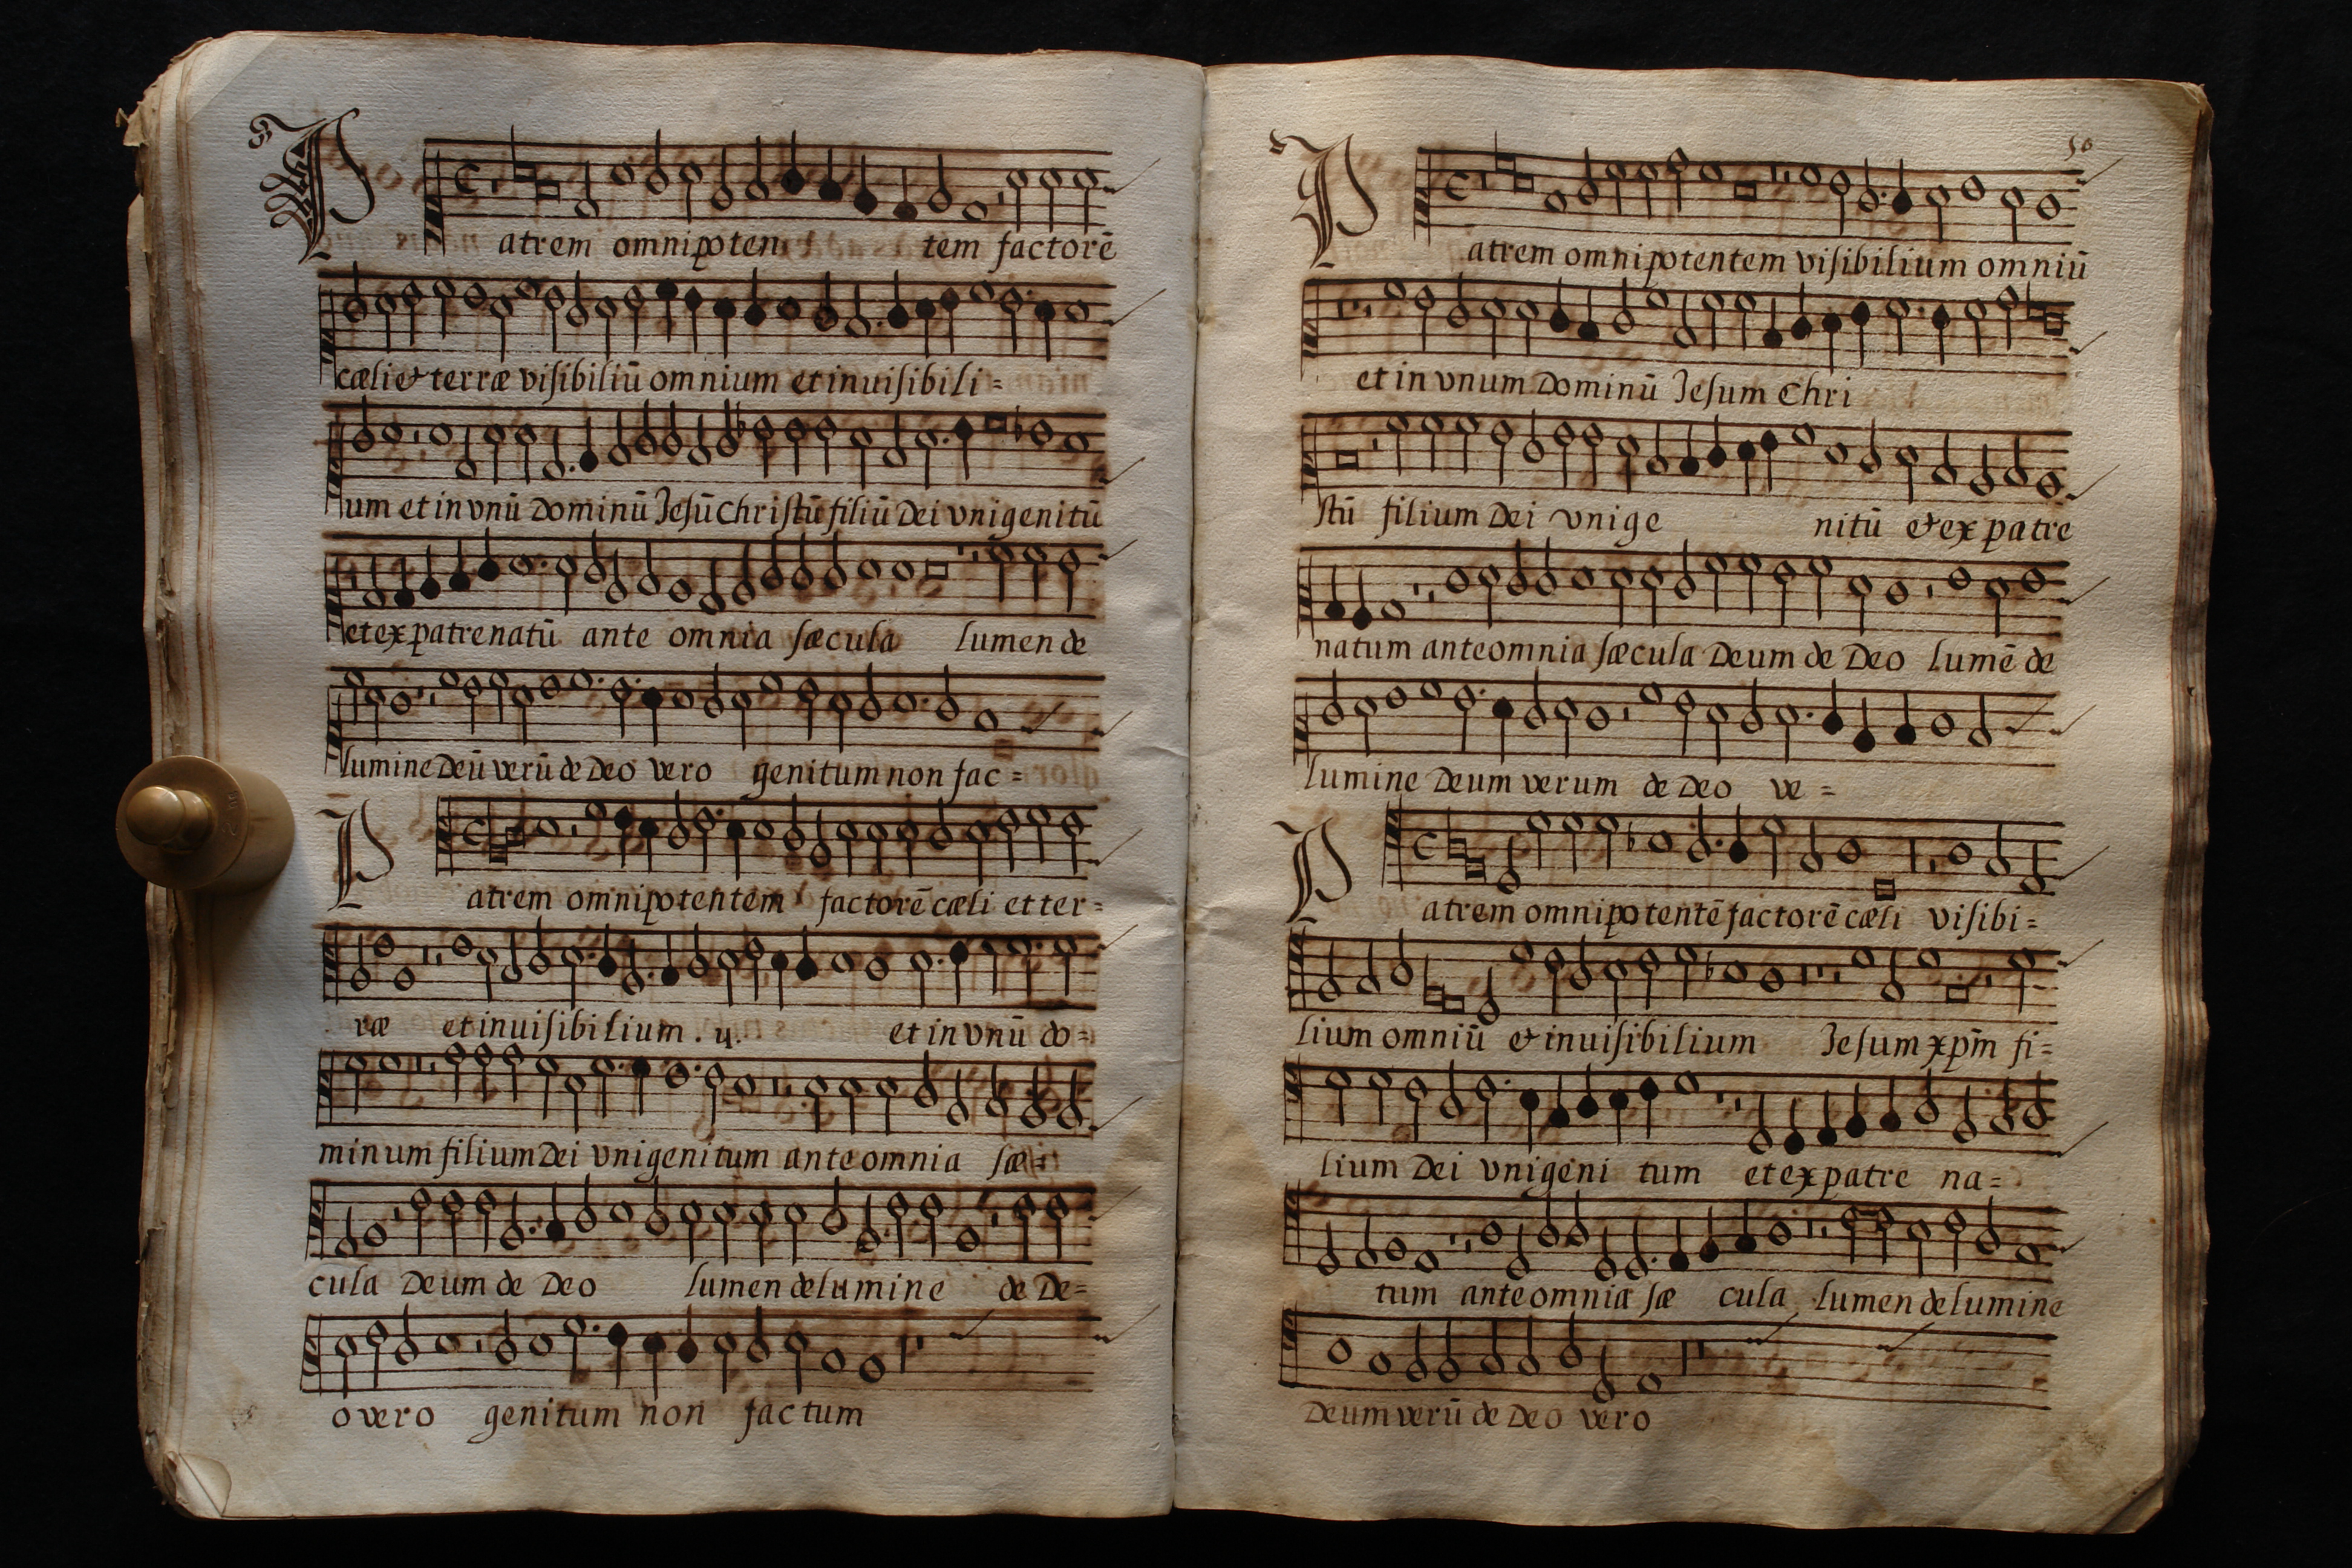 Patrem omnipoten tem factorē
cæli & terræ visibiliū omnium et inuisibili=
um et in vnū Dominū Jesū Christū filiū Dei vnigenitū
et ex patre natū ante omnia sæcula lumen de
lumine Deū verū de Deo vero genitum non fac=
Patrem omnipotentem factorē cæli et ter=
ræ et inuisibilium . ij. et in vnū do=
minum filium Dei vnigenitum ante omnia sæ=
cula Deum de Deo lumen de lumine de De=
o vero genitum non factum
50
Patrem omnipotentem visibilium omniū
et in vnum Dominū Jesum Chri
stū filium Dei vnige nitū & ex patre
natum ante omnia sæcula Deum de Deo lumē de
lumine Deum verum de Deo ve=
Patrem omnipotentē factorē cæli visibi=
lium omniū & inuisibilium Jesum xp̄m fi=
lium Dei vnigeni tum et ex patre na=
tum ante omnia sæ cula lumen de lumine
Deum verū de Deo vero